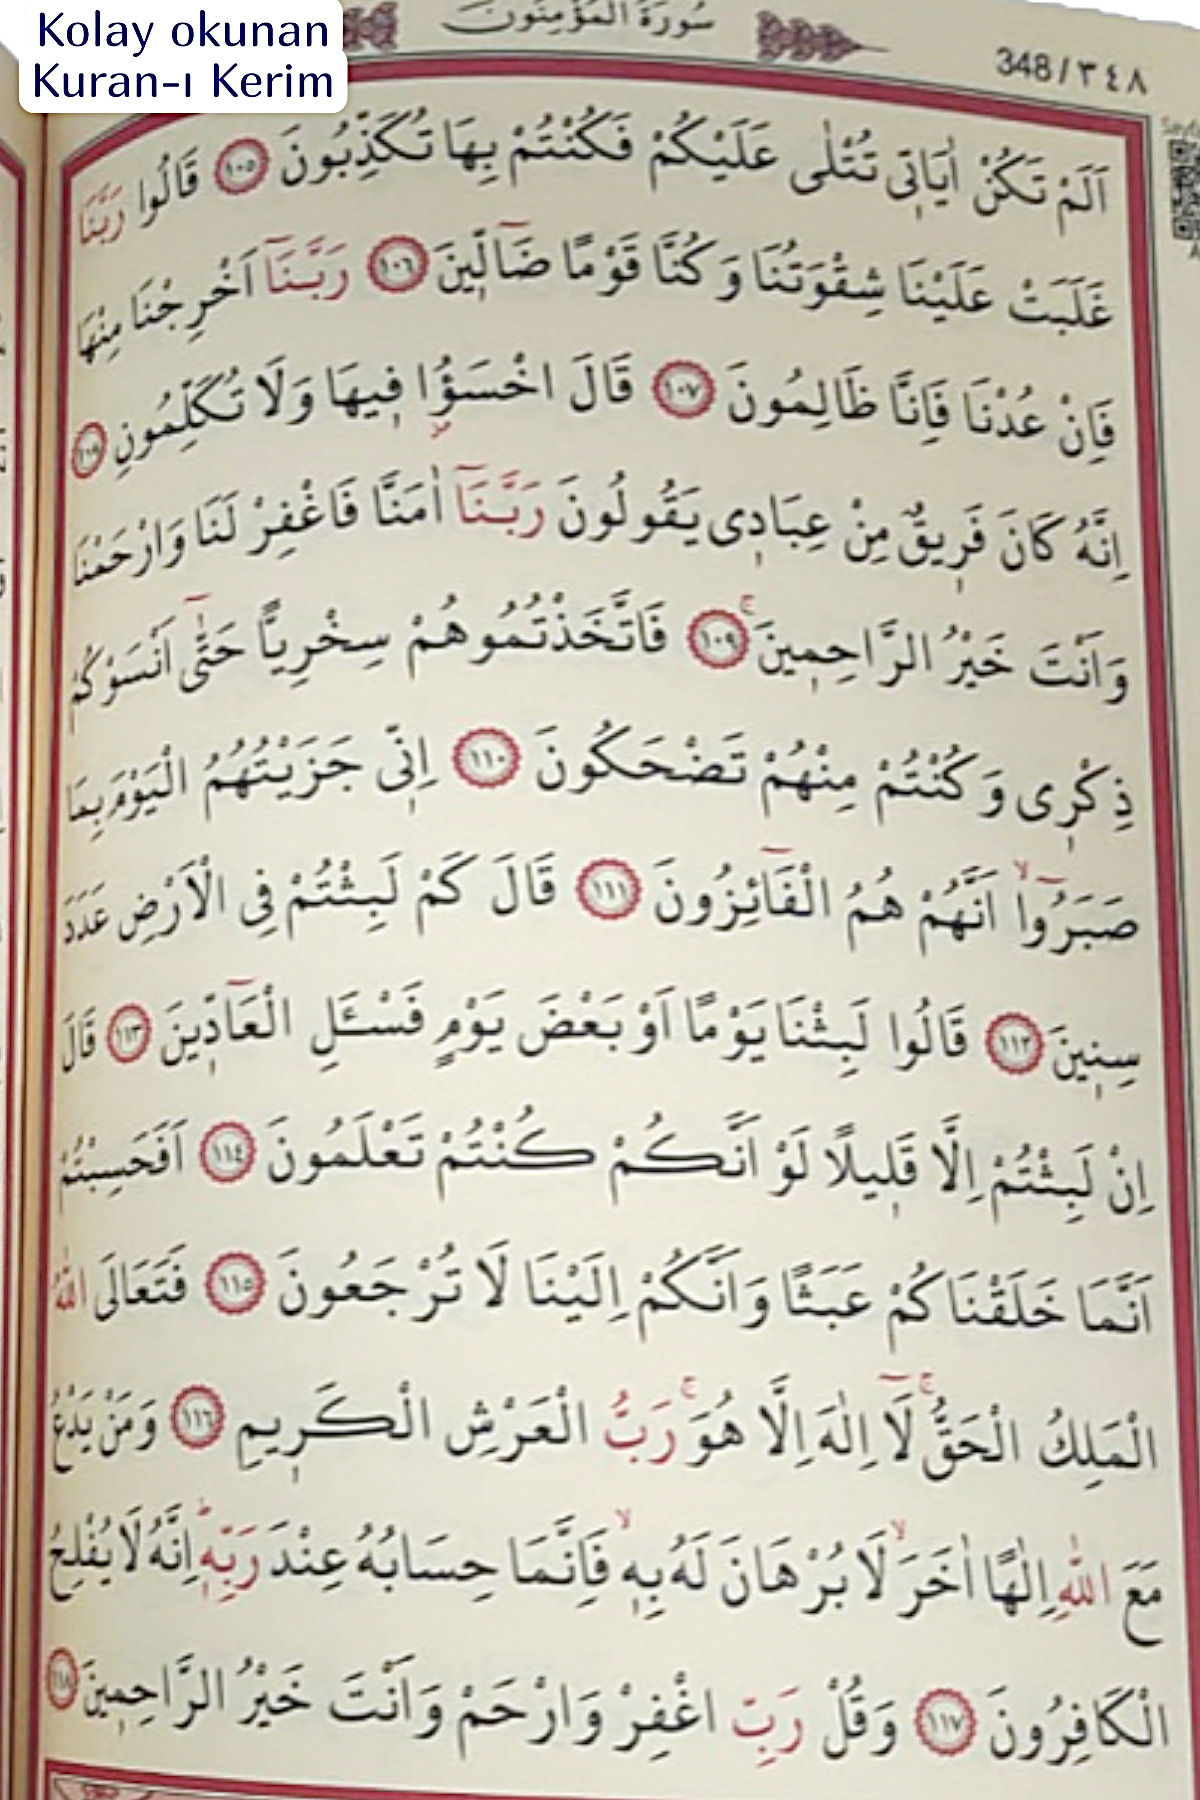 Kolay okunan
Kuran-ı Kerim
سورة المؤمنون
348 / ٣٤٨
اَلَمْ تَكُنْ اٰيَاتٖى تُتْلٰى عَلَيْكُمْ فَكُنْتُمْ بِهَا تُكَذِّبُونَ ﴿١٠٥﴾ قَالُوا رَبَّنَا
غَلَبَتْ عَلَيْنَا شِقْوَتُنَا وَكُنَّا قَوْمًا ضَٓالّٖينَ ﴿١٠٦﴾ رَبَّنَٓا اَخْرِجْنَا مِنْهَا
فَاِنْ عُدْنَا فَاِنَّا ظَالِمُونَ ﴿١٠٧﴾ قَالَ اخْسَؤُ۫ا فٖيهَا وَلَا تُكَلِّمُونِ ﴿١٠٨﴾
اِنَّهُ كَانَ فَرٖيقٌ مِنْ عِبَادٖى يَقُولُونَ رَبَّنَٓا اٰمَنَّا فَاغْفِرْ لَنَا وَارْحَمْنَا
وَاَنْتَ خَيْرُ الرَّاحِمٖينَۚ ﴿١٠٩﴾ فَاتَّخَذْتُمُوهُمْ سِخْرِيًّا حَتّٰٓى اَنْسَوْكُمْ
ذِكْرٖى وَكُنْتُمْ مِنْهُمْ تَضْحَكُونَ ﴿١١٠﴾ اِنّٖى جَزَيْتُهُمُ الْيَوْمَ بِمَا
صَبَرُٓواۙ اَنَّهُمْ هُمُ الْفَٓائِزُونَ ﴿١١١﴾ قَالَ كَمْ لَبِثْتُمْ فِى الْاَرْضِ عَدَدَ
سِنٖينَ ﴿١١٢﴾ قَالُوا لَبِثْنَا يَوْمًا اَوْ بَعْضَ يَوْمٍ فَسْـَٔلِ الْعَٓادّٖينَ ﴿١١٣﴾ قَالَ
اِنْ لَبِثْتُمْ اِلَّا قَلٖيلًا لَوْ اَنَّكُمْ كُنْتُمْ تَعْلَمُونَ ﴿١١٤﴾ اَفَحَسِبْتُمْ
اَنَّمَا خَلَقْنَاكُمْ عَبَثًا وَاَنَّكُمْ اِلَيْنَا لَا تُرْجَعُونَ ﴿١١٥﴾ فَتَعَالَى اللّٰهُ
الْمَلِكُ الْحَقُّۚ لَٓا اِلٰهَ اِلَّا هُوَۚ رَبُّ الْعَرْشِ الْكَرٖيمِ ﴿١١٦﴾ وَمَنْ يَدْعُ
مَعَ اللّٰهِ اِلٰهًا اٰخَرَۙ لَا بُرْهَانَ لَهُ بِهٖۙ فَاِنَّمَا حِسَابُهُ عِنْدَ رَبِّهٖؕ اِنَّهُ لَا يُفْلِحُ
الْكَافِرُونَ ﴿١١٧﴾ وَقُلْ رَبِّ اغْفِرْ وَارْحَمْ وَاَنْتَ خَيْرُ الرَّاحِمٖينَ ﴿١١٨﴾